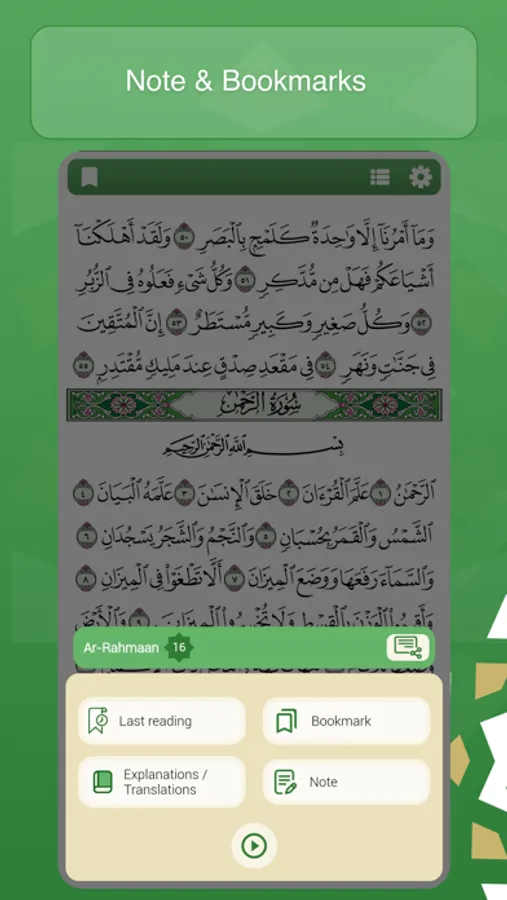 Note & Bookmarks
وَمَآ أَمْرُنَآ إِلَّا وَٰحِدَةٌ كَلَمْحٍۭ بِٱلْبَصَرِ ٥٠ وَلَقَدْ أَهْلَكْنَآ
أَشْيَاعَكُمْ فَهَلْ مِن مُّدَّكِرٍ ٥١ وَكُلُّ شَىْءٍ فَعَلُوهُ فِى ٱلزُّبُرِ
٥٢ وَكُلُّ صَغِيرٍ وَكَبِيرٍ مُّسْتَطَرٌ ٥٣ إِنَّ ٱلْمُتَّقِينَ
فِى جَنَّٰتٍ وَنَهَرٍ ٥٤ فِى مَقْعَدِ صِدْقٍ عِندَ مَلِيكٍ مُّقْتَدِرٍۭ ٥٥
سُورَةُ ٱلرَّحْمَٰن
بِسْمِ ٱللَّهِ ٱلرَّحْمَٰنِ ٱلرَّحِيمِ
ٱلرَّحْمَٰنُ ١ عَلَّمَ ٱلْقُرْءَانَ ٢ خَلَقَ ٱلْإِنسَٰنَ ٣ عَلَّمَهُ ٱلْبَيَانَ ٤
ٱلشَّمْسُ وَٱلْقَمَرُ بِحُسْبَانٍ ٥ وَٱلنَّجْمُ وَٱلشَّجَرُ يَسْجُدَانِ ٦
وَٱلسَّمَآءَ رَفَعَهَا وَوَضَعَ ٱلْمِيزَانَ ٧ أَلَّا تَطْغَوْا۟ فِى ٱلْمِيزَانِ ٨
وَأَقِيمُوا۟ ٱلْوَزْنَ بِٱلْقِسْطِ وَلَا تُخْسِرُوا۟ ٱلْمِيزَانَ ٩ وَٱلْأَرْضَ
Ar-Rahmaan 16
Last reading
Bookmark
Explanations /
Translations
Note